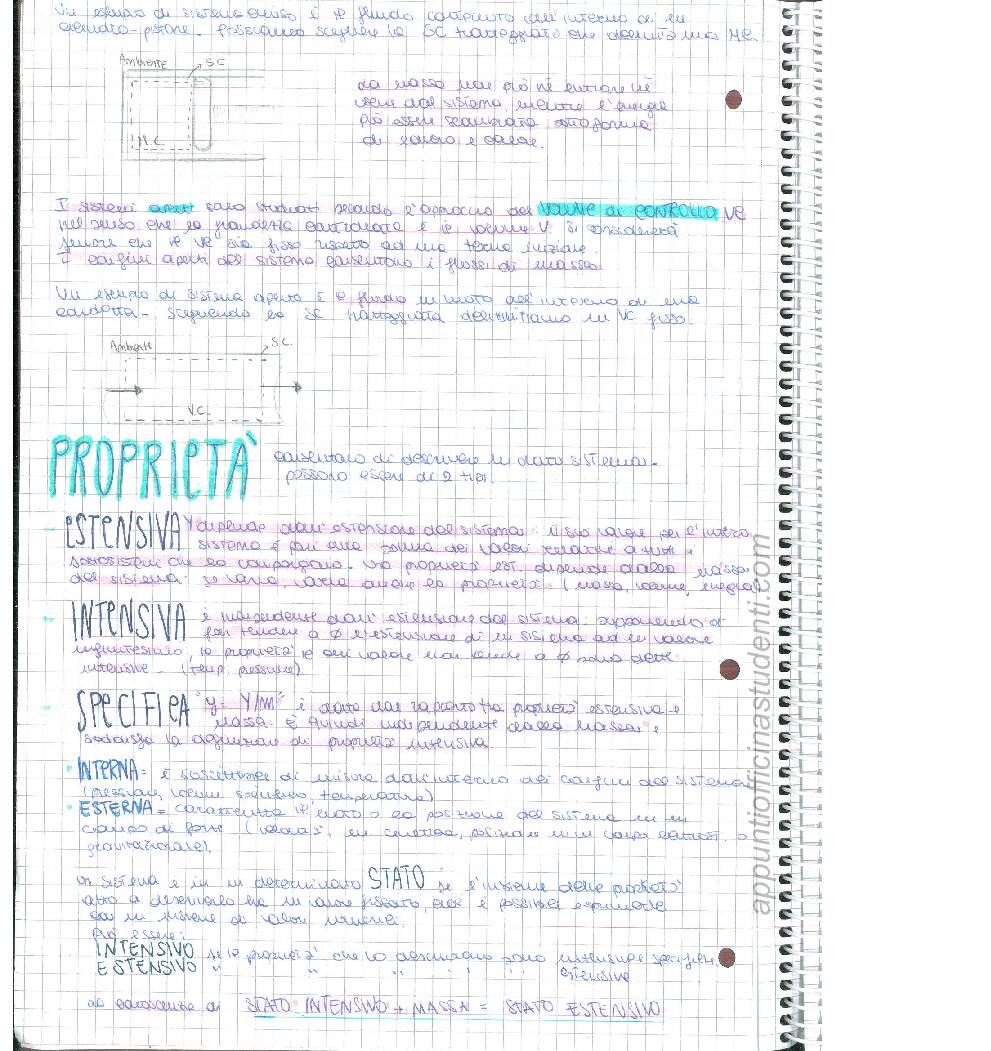 Un esempio di sistema chiuso è il fluido contenuto all'interno di un
cilindro-pistone. Possiamo scegliere la SC tratteggiata che delimita una MC.
Ambiente SC
M.C.
La massa non può nè entrare nè
uscire dal sistema, mentre l'energia
può essere scambiata sottoforma
di lavoro e calore.
I sistemi aperti sono studiati secondo l'approccio del VOLUME DI CONTROLLO VC
nel senso che la grandezza controllata è il volume V. Si considererà
sempre che il VC sia fisso rispetto ad una terna inerziale.
I confini aperti del sistema consentono i flussi di massa
Un esempio di sistema aperto è il fluido in moto all'interno di una
condotta. Scegliendo la SC tratteggiata delimitiamo un VC fisso.
Ambiente S.C.
V.C.
PROPRIETÀ consentono di descrivere un dato sistema.
possono essere di 2 tipi:
ESTENSIVA Y dipende dall'estensione del sistema: il suo valore per l'intero
sistema è pari alla somma dei valori relativi a tutti i
sottosistemi che lo compongono. Una proprietà est. dipende dalla massa
del sistema: se varia, varia anche la proprietà. (massa, volume, energia)
INTENSIVA è indipendente dall'estensione del sistema: supponendo di
far tendere a 0 l'estensione di un sistema ad un valore
infinitesimo, le proprietà il cui valore non tende a 0 sono dette
intensive. (temp, pressione).
SPECIFICA "y = Y/m" è data dal rapporto tra proprietà estensiva e
massa. È quindi indipendente dalla massa e
soddisfa la definizione di proprietà intensiva
INTERNA = è suscettibile di misura dall'interno dei confini del sistema
(pressione, volume specifico, temperatura)
ESTERNA = caratterizza il moto o la posizione del sistema in un
campo di forze (velocità, en cinetica, posizione in un campo o
gravitazionale).
Un sistema è in un determinato STATO se l'insieme delle proprietà
atto a descriverlo ha un valore fissato, cioè è possibile esprimerle
con un insieme di valori numerici.
Può essere:
INTENSIVO se le proprietà che lo descrivono sono intensive specifiche
ESTENSIVO " " " " " " estensive
la conoscenza di STATO INTENSIVO + MASSA = STATO ESTENSIVO
appuntiofficinastudenti.com